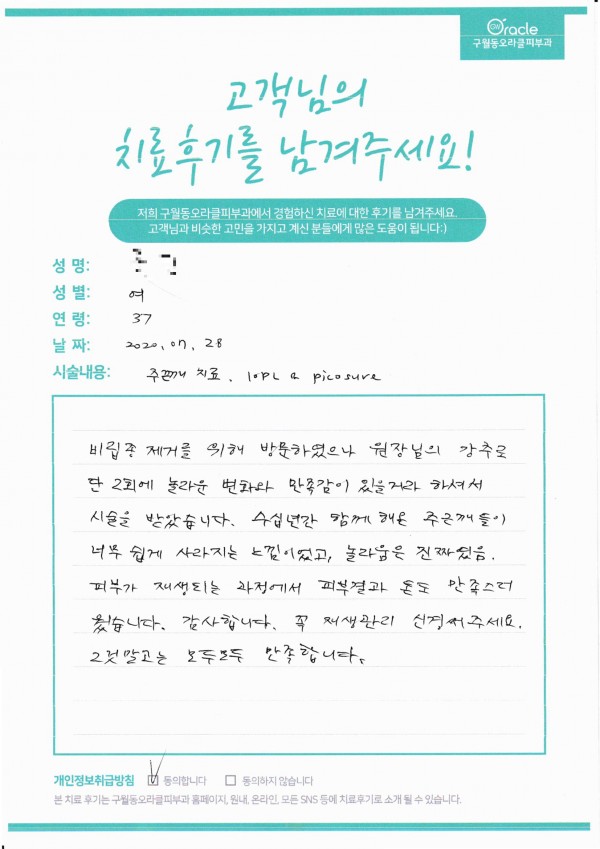 Oracle
구월동오라클피부과
고객님의
치료후기를 남겨주세요!
저희 구월동오라클피부과에서 경험하신 치료에 대한 후기를 남겨주세요.
고객님과 비슷한 고민을 가지고 계신 분들에게 많은 도움이 됩니다:)
성 명:
성 별: 여
연 령: 37
날 짜: 2020. 07. 28
시술내용: 주근깨 치료. IOPL & picosure
비립종 제거를 위해 방문하였으나 원장님의 강추로
단 2회에 놀라운 변화와 만족감이 있을거라 하셔서
시술을 받았습니다. 수십년간 함께 해온 주근깨들이
너무 쉽게 사라지는 느낌이었고, 놀라움은 진짜였음.
피부가 재생되는 과정에서 피부결과 톤도 만족스러
웠습니다. 감사합니다. 꼭 재생관리 신경써주세요.
그것말고는 모두모두 만족합니다.
개인정보취급방침 동의합니다 동의하지 않습니다
본 치료 후기는 구월동오라클피부과 홈페이지, 원내, 온라인, 모든 SNS 등에 치료후기로 소개 될 수 있습니다.